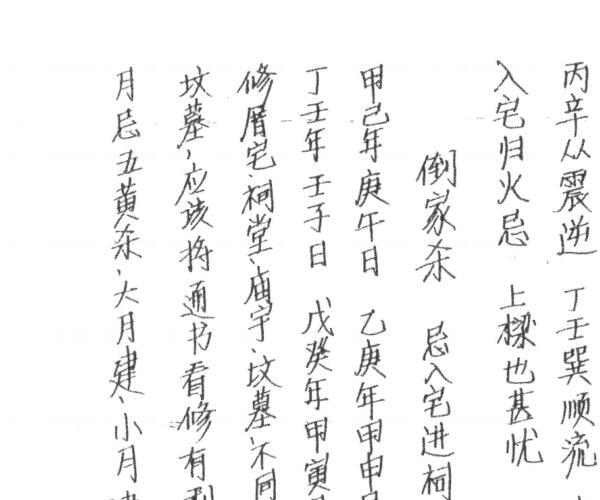 丙辛从震逆 丁壬巽顺流
入宅归火忌 上樑也甚忧
倒家杀 忌入宅进祠
甲己年庚午日 乙庚年甲申
丁壬年壬子日 戊癸年甲寅
修厝宅、祠堂、庙宇、坟墓、不同
坟墓、应该将通书看修有
月忌五黄杀、大月建、小月